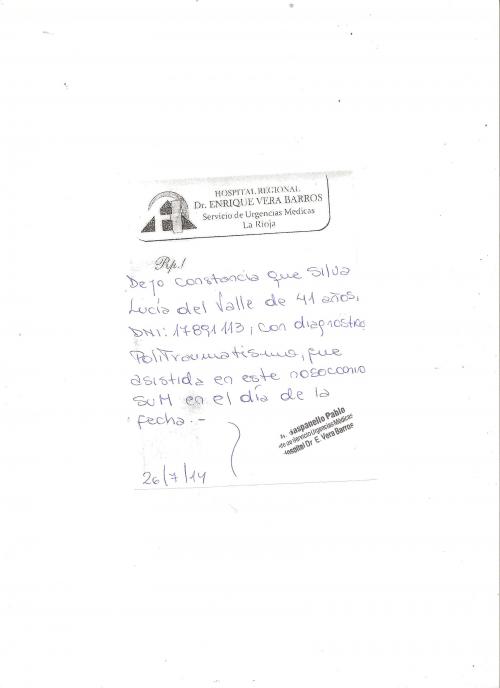 HOSPITAL REGIONAL
Dr. ENRIQUE VERA BARROS
Servicio de Urgencias Médicas
La Rioja
Rp./
Dejo constancia que Silva
Lucía del Valle de 41 años,
DNI: 17891113, con diagnostico
PoliTraumatismo, fue
asistida en este nosocomio
SUM en el día de la
fecha.-
26/7/14
Gaspanello Pablo
de Servicio Urgencias Médicas
Hospital Dr. E. Vera Barros